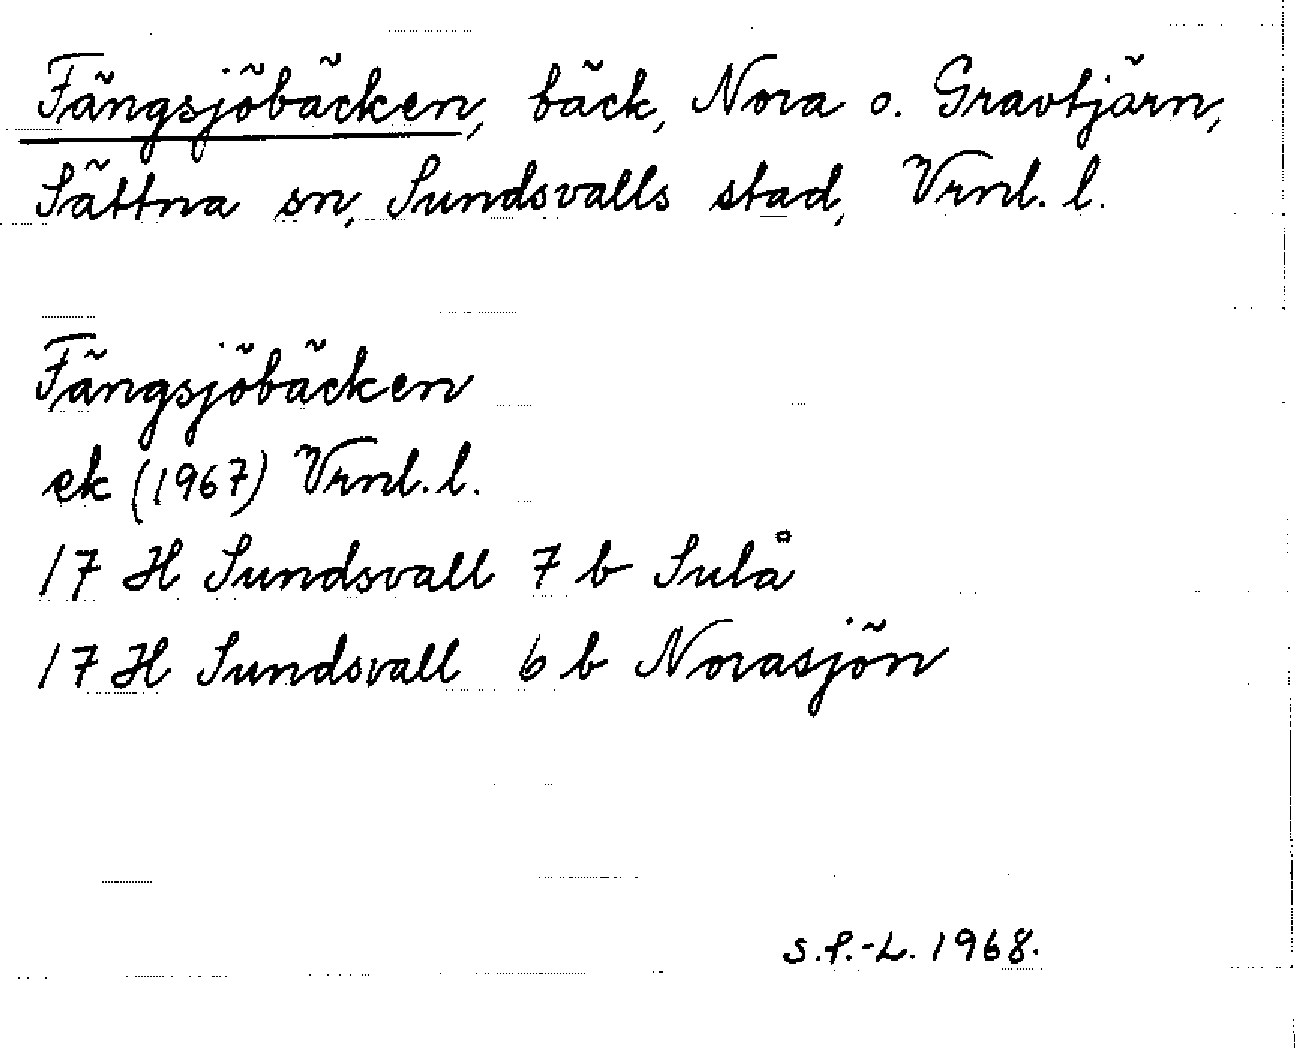 Fängsjöbäcken, bäck, Nora o. Gravtjärn,
Sättna sn, Sundsvalls stad, Vrnl. l.
Fängsjöbäcken
ek (1967) Vrnl. l.
17 H Sundsvall 7 b Sulå
17 H Sundsvall 6 b Norasjön
S.P.-L. 1968.